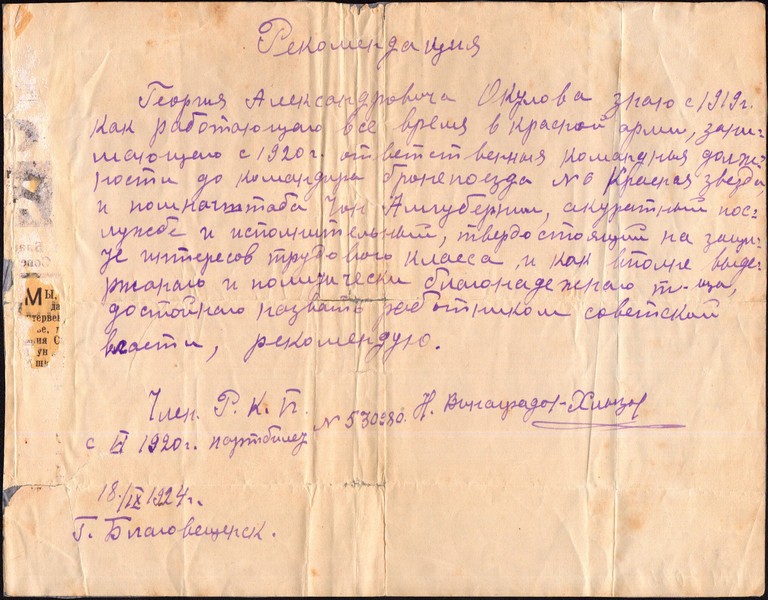 Рекомендация
Георгия Александровича Окулова знаю с 1919г.
как работающего все время в Красной армии, зани-
мающего с 1920г. ответственныя командныя долж-
ности до командира бронепоезда №6 Красная звезда,
и помначштаба Чон Амгубернии, акуратный по с-
лужбе и исполнительный, твердостоящий на защи-
те интересов трудового класса и как вполне выде-
ржанаго и политически благонадежнаго т-ща,
достойнаго назвать работником советской
власти, рекомендую.
Мы,
Член. Р. К. П.
с VI 1920г. партбилет №530980. Н. Виноградов-
18/IX 1924г.
Г. Благовещенск.